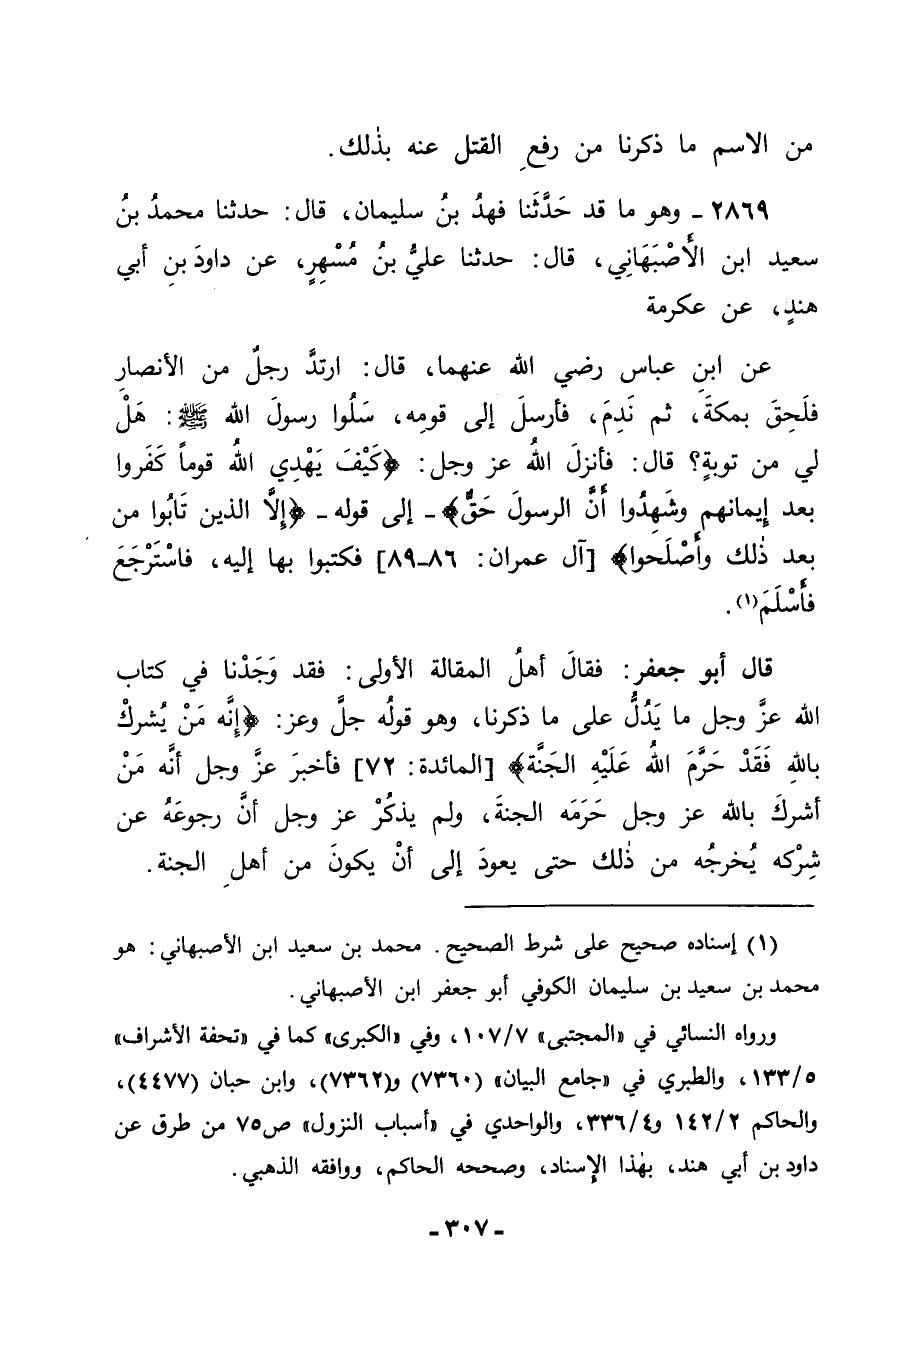 من الاسم ما ذكرنا من رفعِ القتل عنه بذٰلك.
٢٨٦٩ ـ وهو ما قد حَدَّثَنا فهدُ بنُ سليمان، قال: حدثنا محمدُ بنُ
سعيد ابن الأَصْبَهَانِي، قال: حدثنا عليُّ بنُ مُسْهِرٍ، عن داودَ بنِ أبي
هندٍ، عن عكرمة
عن ابنِ عباس رضي الله عنهما، قال: ارتدَّ رجلٌ من الأنصارِ
فلَحِقَ بمكةَ، ثم نَدِمَ، فأرسلَ إلى قومِه، سَلُوا رسولَ الله ﷺ: هَلْ
لي من توبةٍ؟ قال: فأنزلَ اللهُ عز وجل: ﴿كَيْفَ يَهْدِي اللهُ قوماً كَفَروا
بعد إيمانهم وشَهِدُوا أَنَّ الرسولَ حَقٌّ﴾ ـ إلى قوله ـ ﴿إلَّا الذين تَابُوا من
بعد ذٰلك وأَصْلَحوا﴾ [آل عمران: ٨٦-٨٩] فكتبوا بها إليه، فاسْتَرْجَعَ
فأَسْلَمَ(١).
قال أبو جعفر: فقالَ أهلُ المقالة الأولى: فقد وَجَدْنا في كتاب
الله عزَّ وجل ما يَدُلُّ على ما ذكرنا، وهو قولُه جلَّ وعز: ﴿إنَّه مَنْ يُشركْ
باللهِ فَقَدْ حَرَّمَ اللهُ عَلَيْهِ الجَنَّة﴾ [المائدة: ٧٢] فأخبرَ عزَّ وجل أنَّه مَنْ
أشركَ بالله عز وجل حَرَمَه الجنةَ، ولم يذكُرْ عز وجل أنَّ رجوعَهُ عن
شِرْكه يُخرجُه من ذٰلك حتى يعودَ إلى أنْ يكونَ من أهلِ الجنة.
(١) إسناده صحيح على شرط الصحيح. محمد بن سعيد ابن الأصبهاني: هو
محمد بن سعيد بن سليمان الكوفي أبو جعفر ابن الأصبهاني.
ورواه النسائي في «المجتبى» ١٠٧/٧، وفي «الكبرى» كما في «تحفة الأشراف»
١٣٣/٥، والطبري في «جامع البيان» (٧٣٦٠) و(٧٣٦٢)، وابن حبان (٤٤٧٧)،
والحاكم ١٤٢/٢ و٣٣٦/٤، والواحدي في «أسباب النزول» ص٧٥ من طرق عن
داود بن أبي هند، بهٰذا الإسناد، وصححه الحاكم، ووافقه الذهبي.
ـ ٣٠٧ ـ